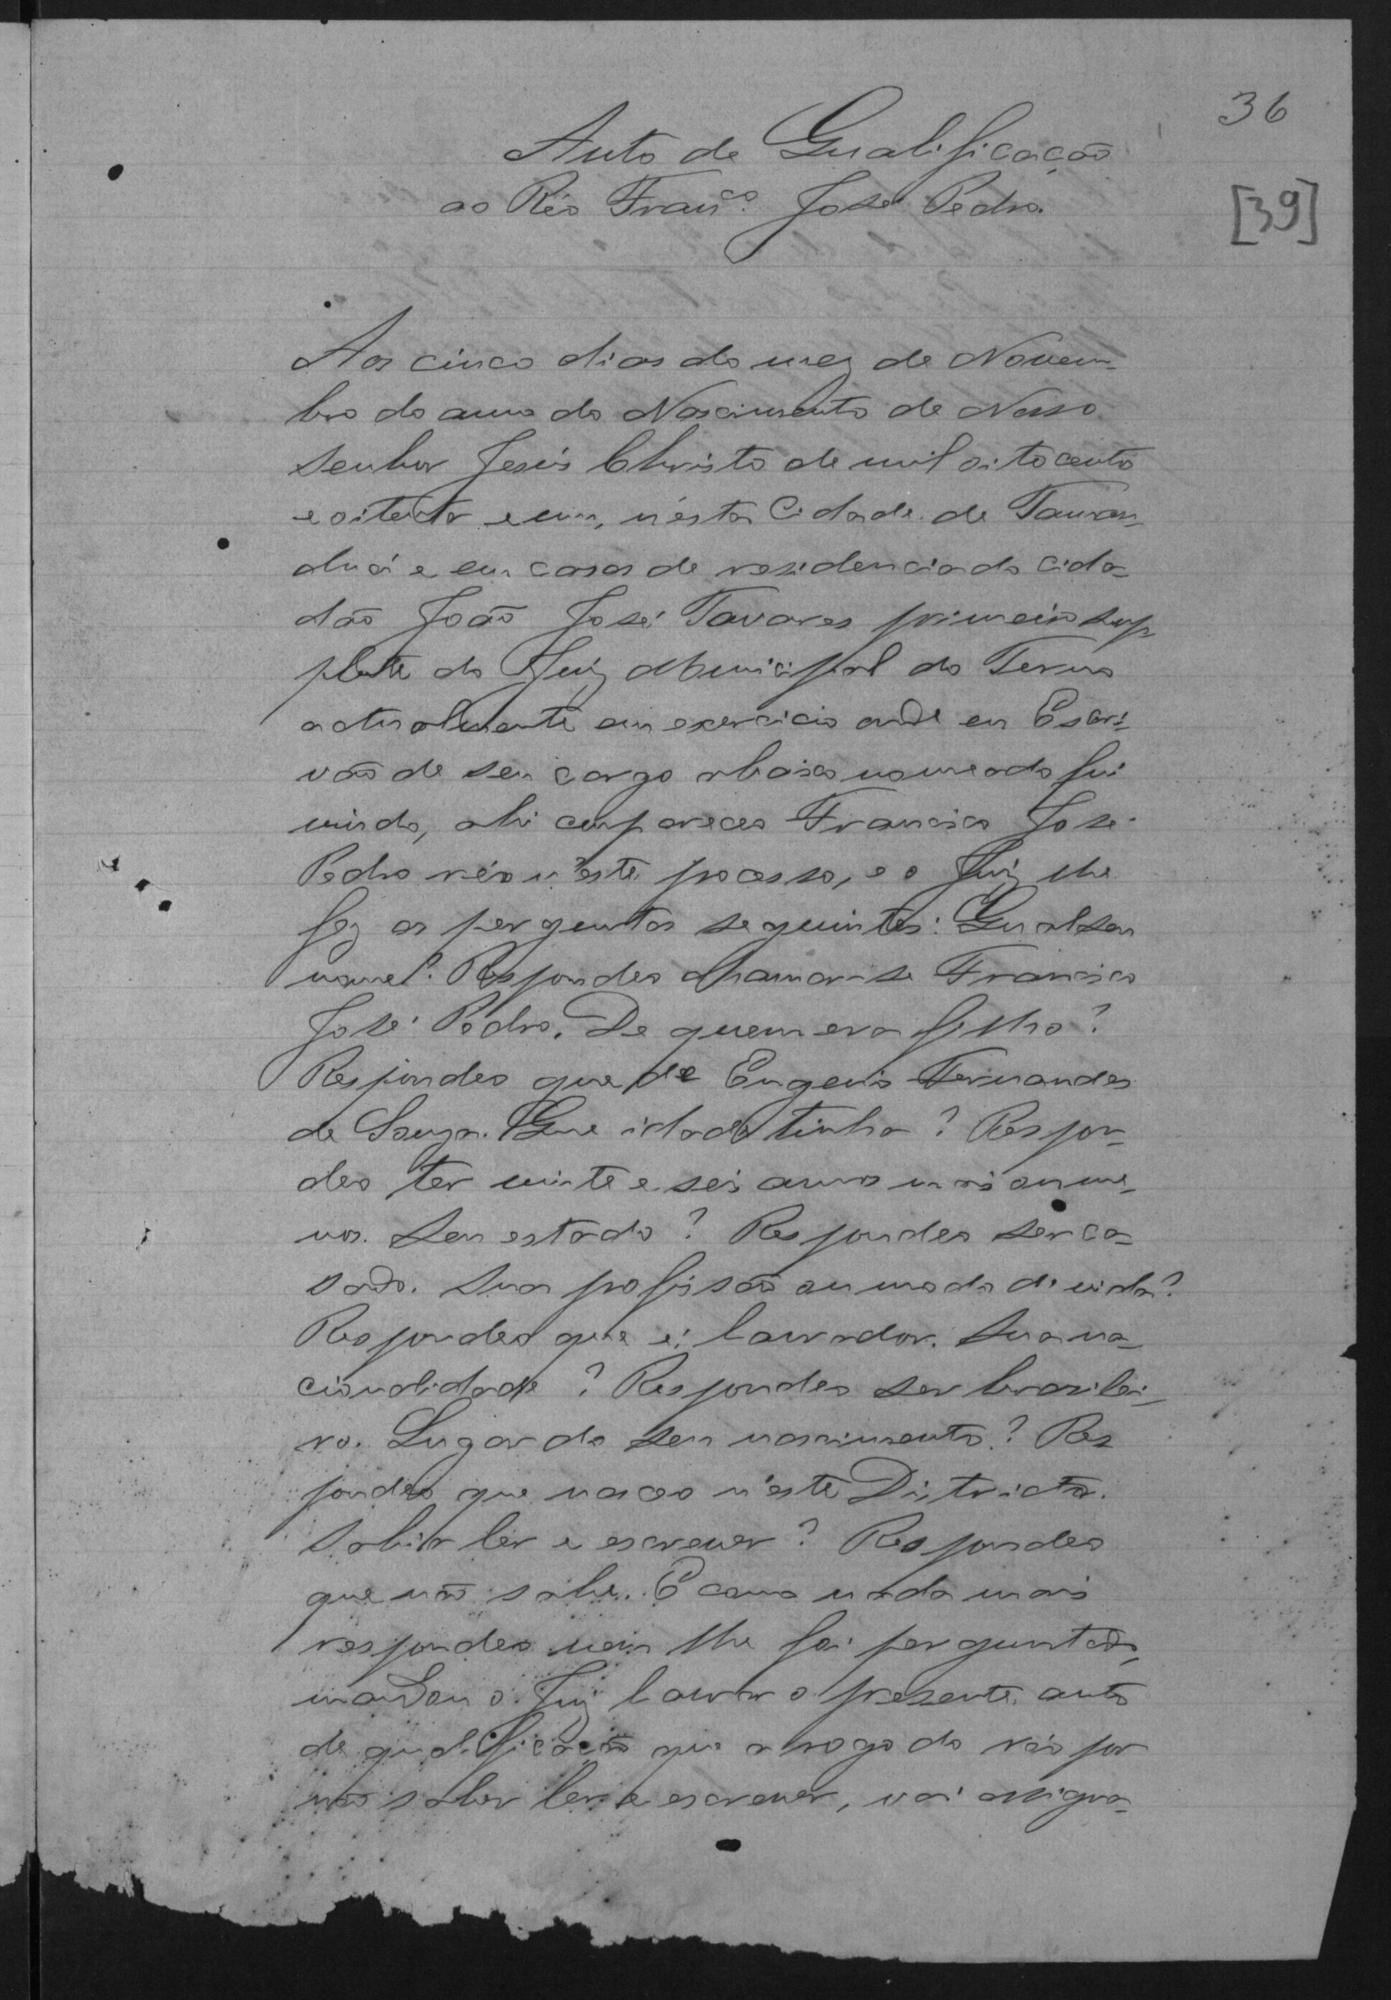 36
[39]
Auto de Qualificação
ao Réo Franco. José Pedro.
Aos cinco dias do mez de Novem-
bro do anno do Nascimento de Nosso
Senhor Jesus Christo de mil oitocento
e oitenta e um, n'esta Cidade de Taman-
duá e em casas de residencia do cida-
dão João José Tavares primeiro sup-
plente do Juiz Municipal do Termo
actualmente em exercicio onde eu Escri-
vão de seu cargo abaixo nomeado fui
vindo, ahi compareceo Francisco José
Pedro réo n'este processo, e o Juiz lhe
fez as perguntas seguintes: Qual seu
nome? Respondeo chamar-se Francisco
José Pedro. De quem era filho?
Respondeo que de Eugenio Fernandes
de Souza. Que idade tinha? Respon-
deo ter vinte e seis annos mais ou me-
nos. Seu estado? Respondeo ser ca-
sado. Sua profissão ou modo de vida?
Respondeo que é lavrador. Sua na-
cionalidade? Respondeo ser brazilei-
ro. Lugar do seu nascimento? Res
pondeo que nasceo n'este Districto.
Sabia ler e escrever? Respondeo
que não sabe. E como nada mais
respondeo nem lhe foi perguntado,
mandou o Juiz lavrar o presente auto
de qualificação que a rogo do réo por
não saber ler e escrever, vai assigna-